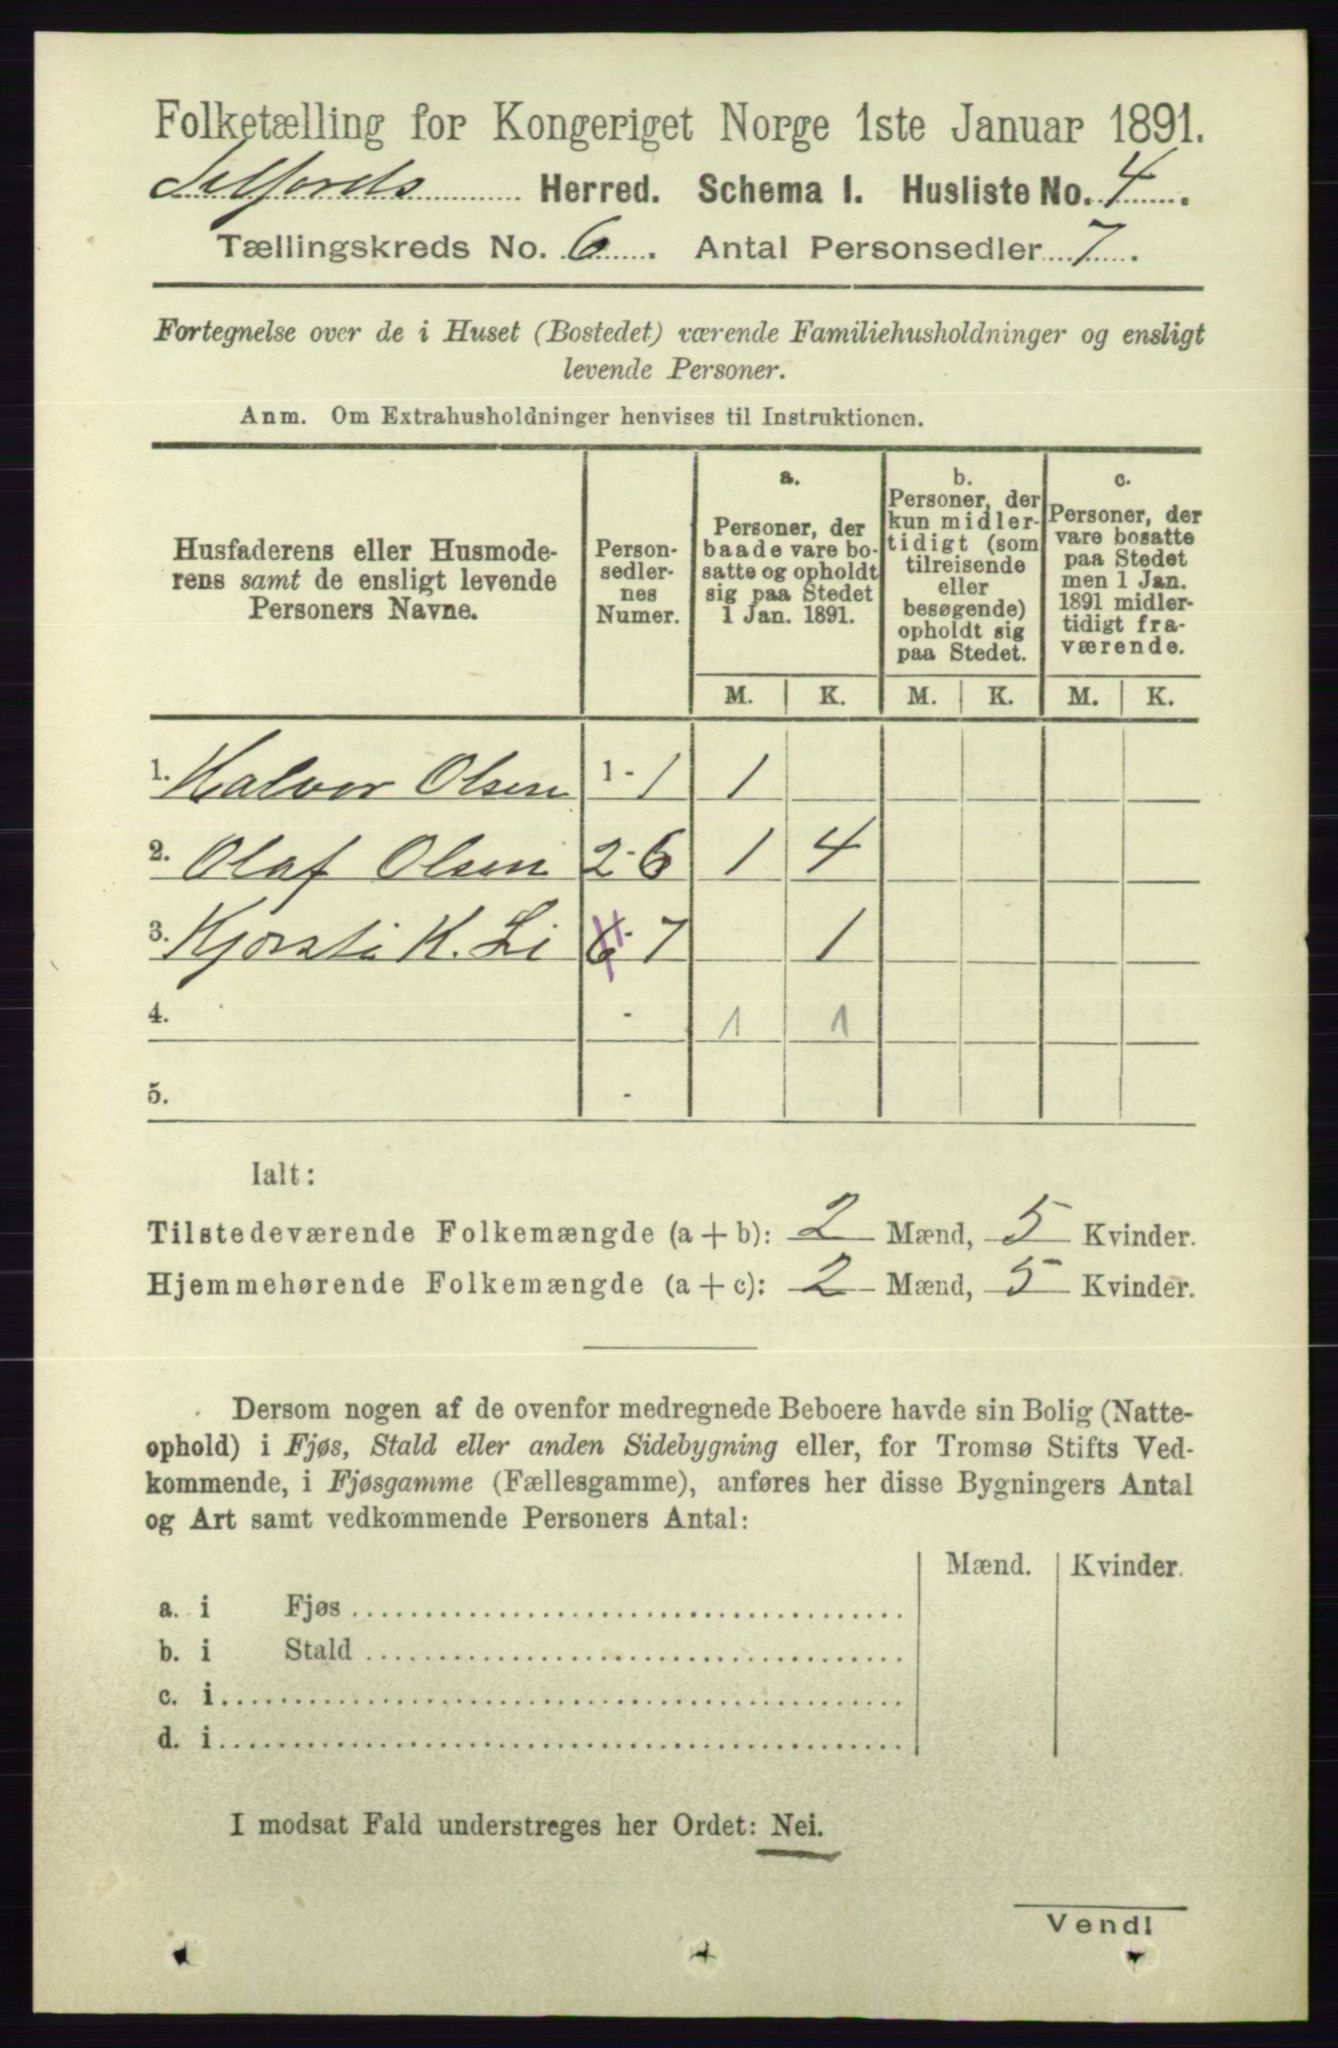 Folketælling for Kongeriget Norge 1ste Januar 1891.
Herred. Schema I. Husliste No. 4.
Tællingskreds No. 6. Antal Personsedler 7.
Fortegnelse over de i Huset (Bostedet) værende Familiehusholdninger og ensligt
levende Personer.
Anm. Om Extrahusholdninger henvises til Instruktionen.
Husfaderens eller Husmode-
rens samt de ensligt levende
Personers Navne.
Person-
sedler-
nes
Numer.
a.
Personer, der
baade vare bo-
satte og opholdt
sig paa Stedet
1 Jan. 1891.
b.
Personer, der
kun midler-
tidigt (som
tilreisende
eller
besøgende)
opholdt sig
paa Stedet.
c.
Personer, der
vare bosatte
paa Stedet
men 1 Jan.
1891 midler-
tidigt fra-
værende.
M. K. M. K. M. K.
1. Halvor Olsen 1 - 1 1
2. Olaf Olsen 2 - 6 1 4
3. Kjorsti K. Li 6 - 7 1
4. - 1 1
5. -
Ialt:
Tilstedeværende Folkemængde (a + b): 2 Mænd, 5 Kvinder.
Hjemmehørende Folkemængde (a + c): 2 Mænd, 5 Kvinder.
Dersom nogen af de ovenfor medregnede Beboere havde sin Bolig (Natte-
ophold) i Fjøs, Stald eller anden Sidebygning eller, for Tromsø Stifts Ved-
kommende, i Fjøsgamme (Fællesgamme), anføres her disse Bygningers Antal
og Art samt vedkommende Personers Antal:
Mænd. Kvinder.
a. i Fjøs
b. i Stald
c. i
d. i
I modsat Fald understreges her Ordet: Nei.
Vend!